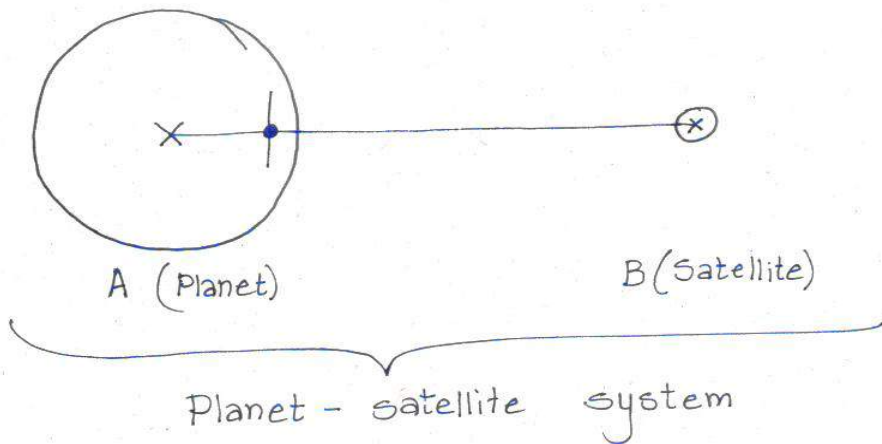 A (Planet)
B (Satellite)
Planet - satellite system